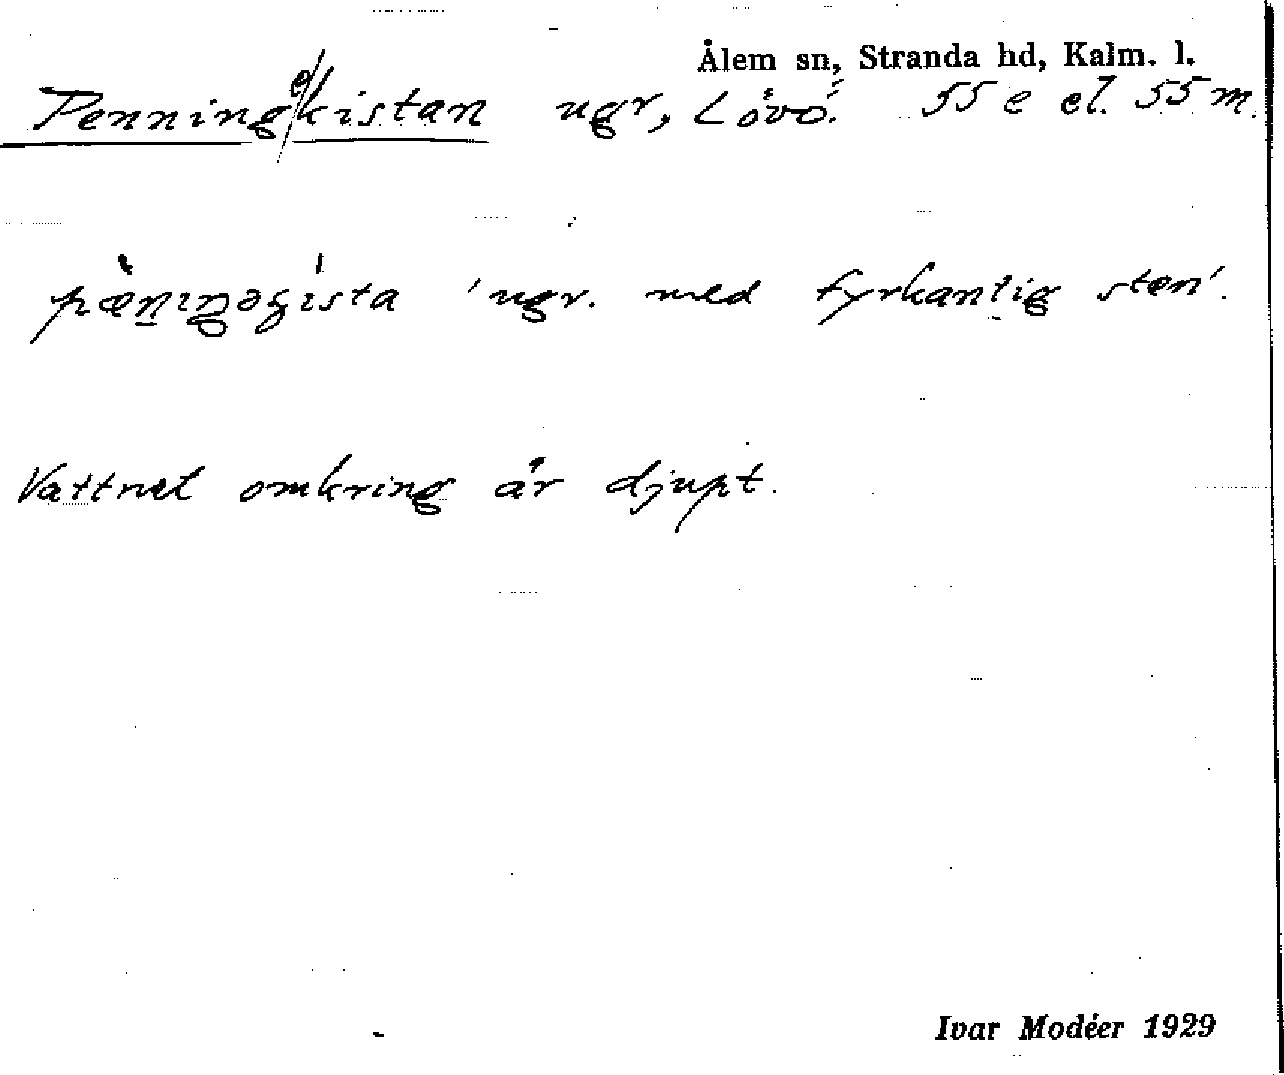 Ålem sn, Stranda hd, Kalm. l.
Penningekistan ugr, Lövö. 55 e el. 55 m.
pæ̀niŋəʒísta 'ugr. med fyrkantig sten'.
Vattnet omkring är djupt.
Ivar Modéer 1929